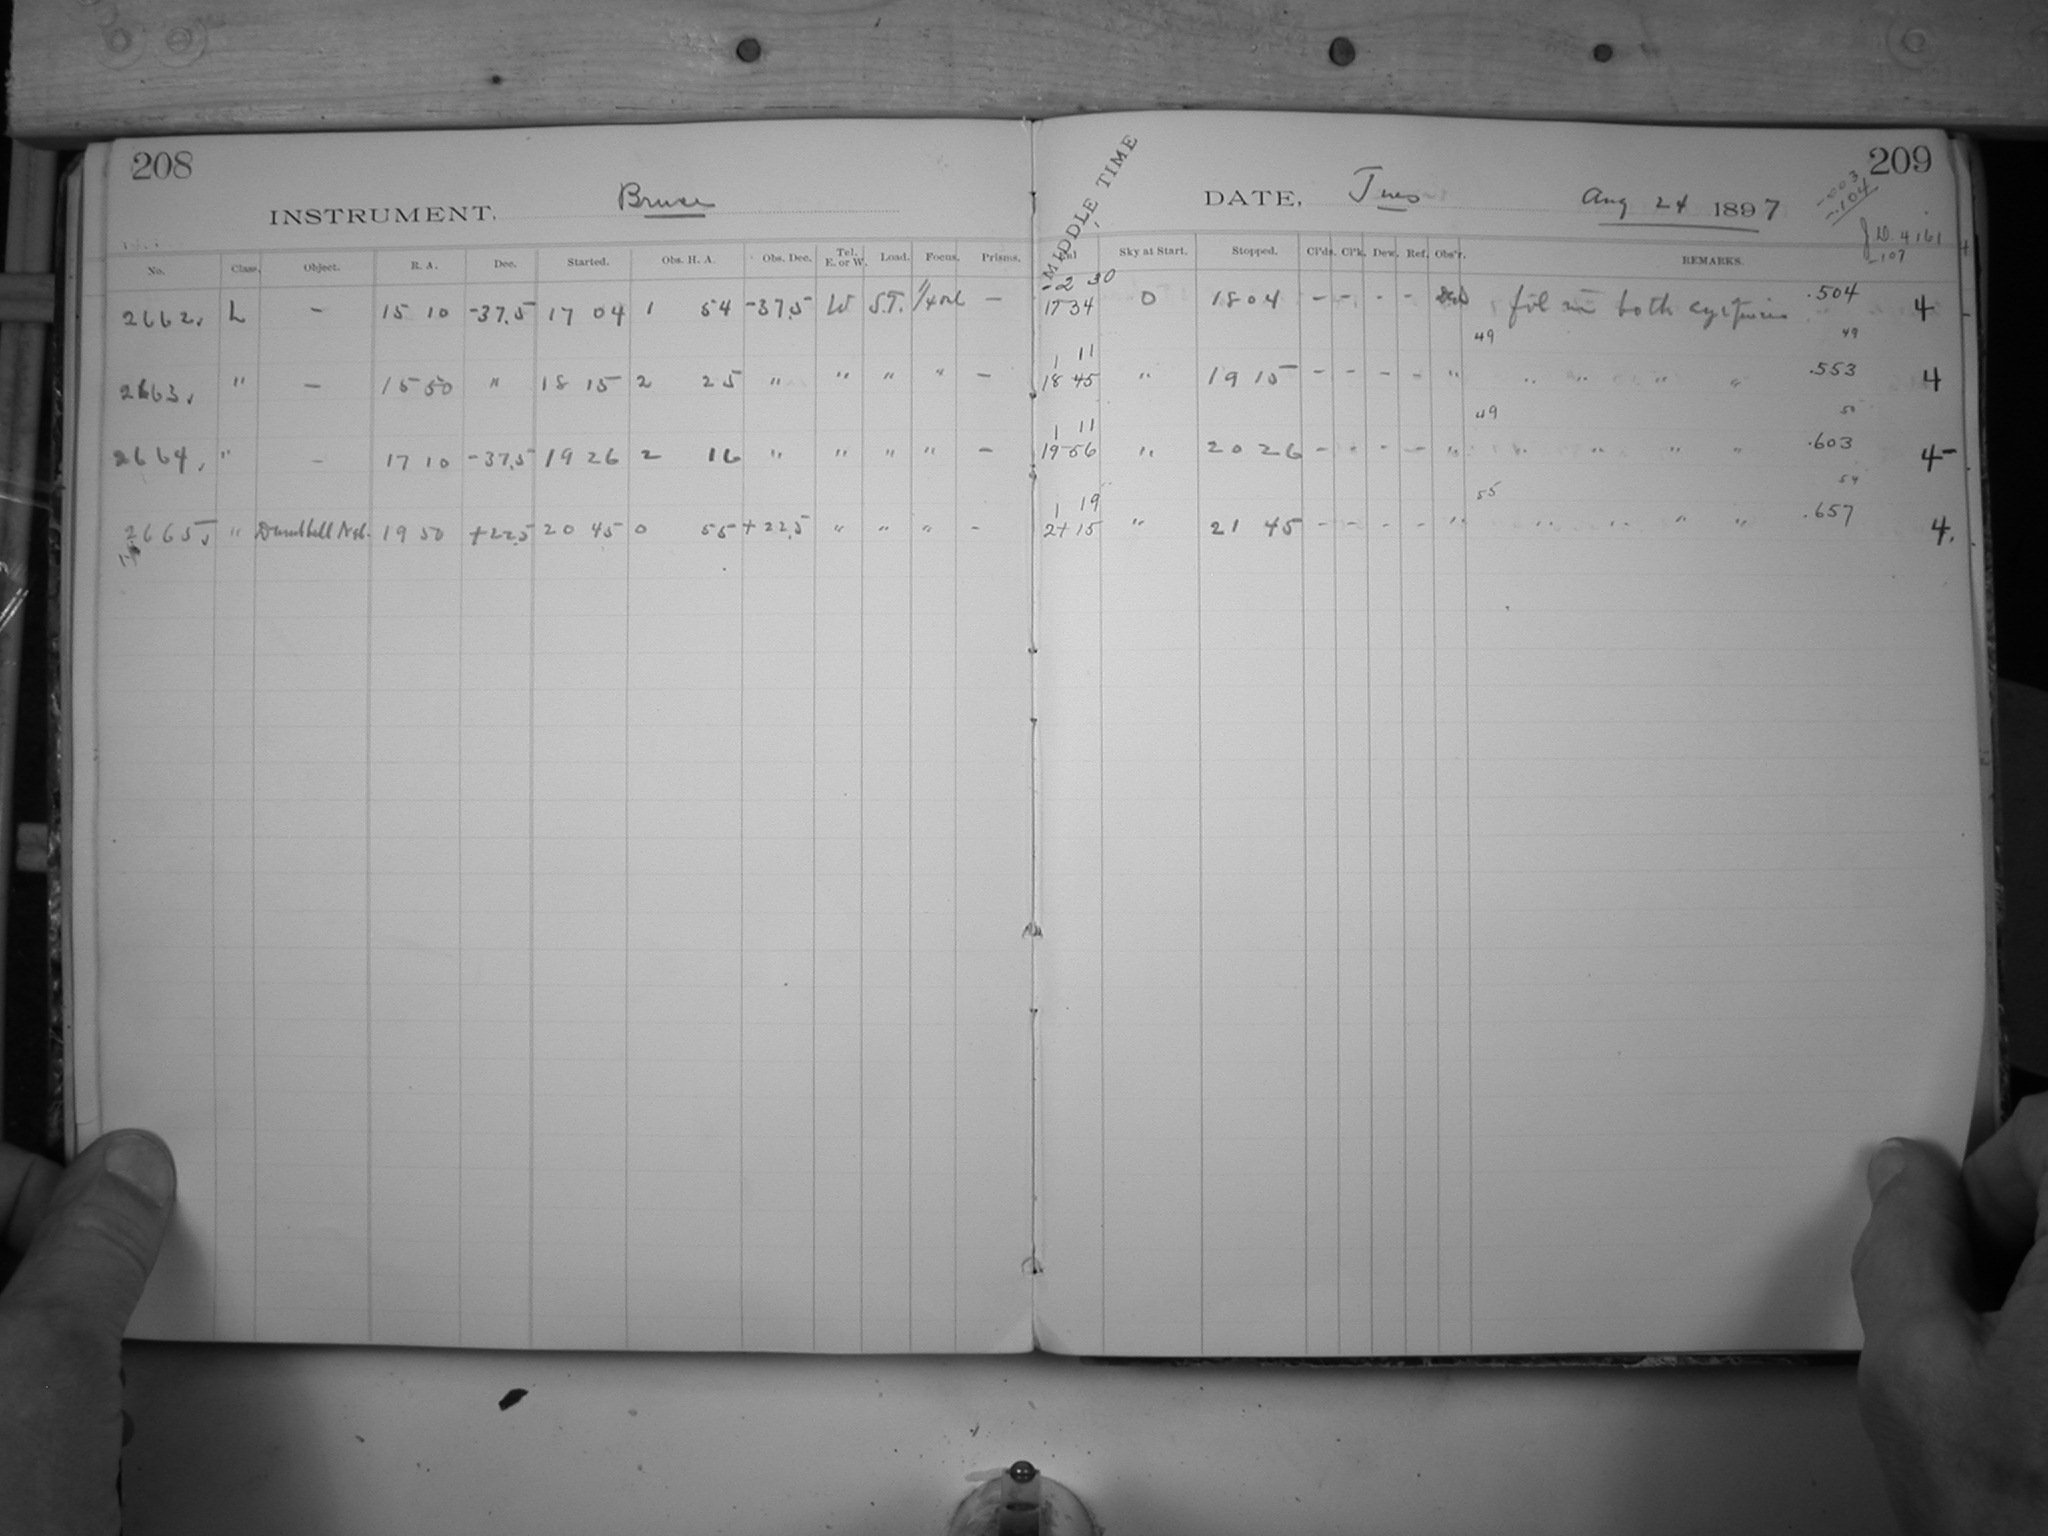 208
INSTRUMENT, Bruce
No. Class. Object. R. A. Dec. Started. Obs. H. A. Obs. Dec. Tel. E. or W. Load. Focus. Prisms.
2662. L — 15 10 -37.5 17 04 1 54 -37.5 W S.T. —
2663. " — 15 50 " 18 15 2 25 " " " " —
2664. " — 17 10 -37.5 19 26 2 16 " " " " —
2665. " Dumbbell Neb. 19 50 +22.5 20 45 0 55 +22.5 " " " -
209
MIDDLE TIME
DATE, Tues Aug 24 1897
-.003
-.104
-.107
J.D. 4161
Sky at Start. Stopped. Cl'ds. Cl'k. Dew. Ref. Obs'r. REMARKS.
-2 30
17 34 0 18 04 - - - - both .504 4
49 49
1 11
18 45 " 19 15 - - - - " " " " " .553 4
49 50
1 11
19 56 " 20 26 - - - - " " " " " .603 4-
55 54
1 19
21 15 " 21 45 - - - - " " " " " .657 4.